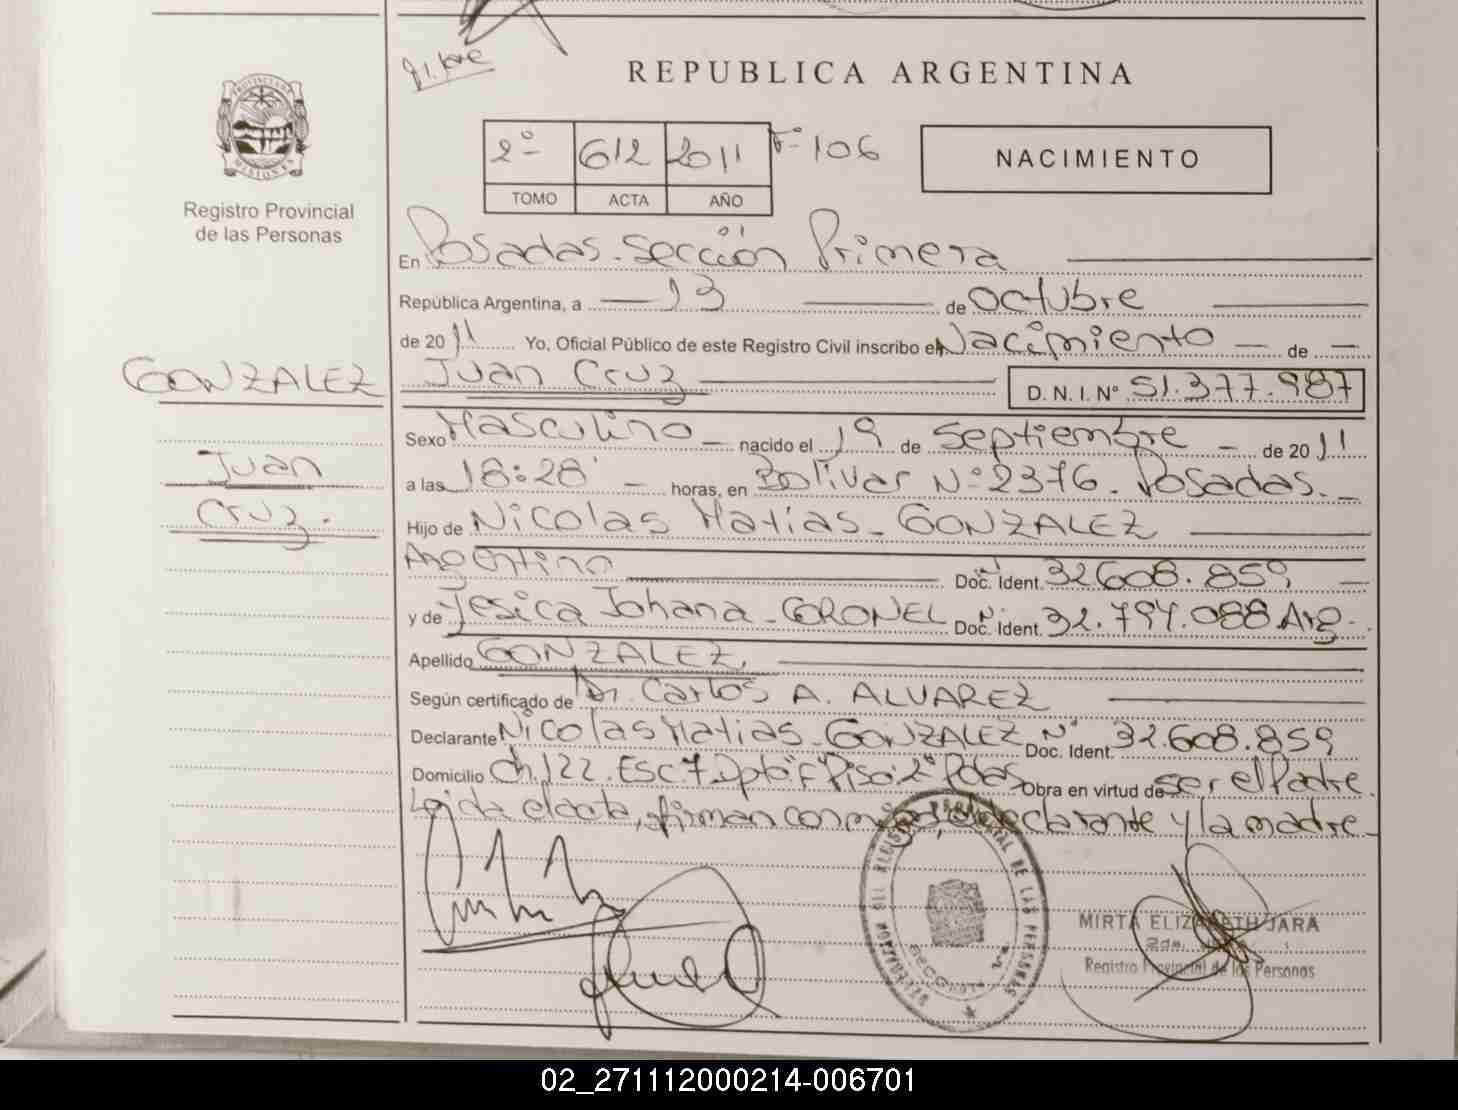 REPUBLICA ARGENTINA
PROVINCIA DE MISIONES
Registro Provincial
de las Personas
2º 612 2011 Fº 106
TOMO ACTA AÑO
NACIMIENTO
En Posadas. Sección Primera
República Argentina, a 13 de Octubre
de 2011 Yo, Oficial Público de este Registro Civil inscribo el Nacimiento de
GONZALEZ
Juan Cruz
D. N. I. Nº 51.377.987
Sexo Masculino nacido el 19 de Septiembre de 2011
Juan
a las 18:28 horas, en Bolívar Nº 2376. Posadas.
Cruz.
Hijo de Nicolas Matias GONZALEZ
Argentino Doc. Ident. Nº 32.608.859
y de Jesica Johana CORONEL Doc. Ident. Nº 32.797.088 Arg.
Apellido GONZALEZ
Según certificado de Dr. Carlos A. ALVAREZ
Declarante Nicolas Matias GONZALEZ Doc. Ident. Nº 32.608.859
Domicilio Ch. 122. Esc 7 Dpto "F" Piso 2º Pdas Obra en virtud de ser el Padre.
Leida el acta, firman conmigo, el declarante y la madre
REGISTRO PROVINCIAL DE LAS PERSONAS
MIRTA ELIZABETH JARA
Registro Provincial de las Personas
02_271112000214-006701